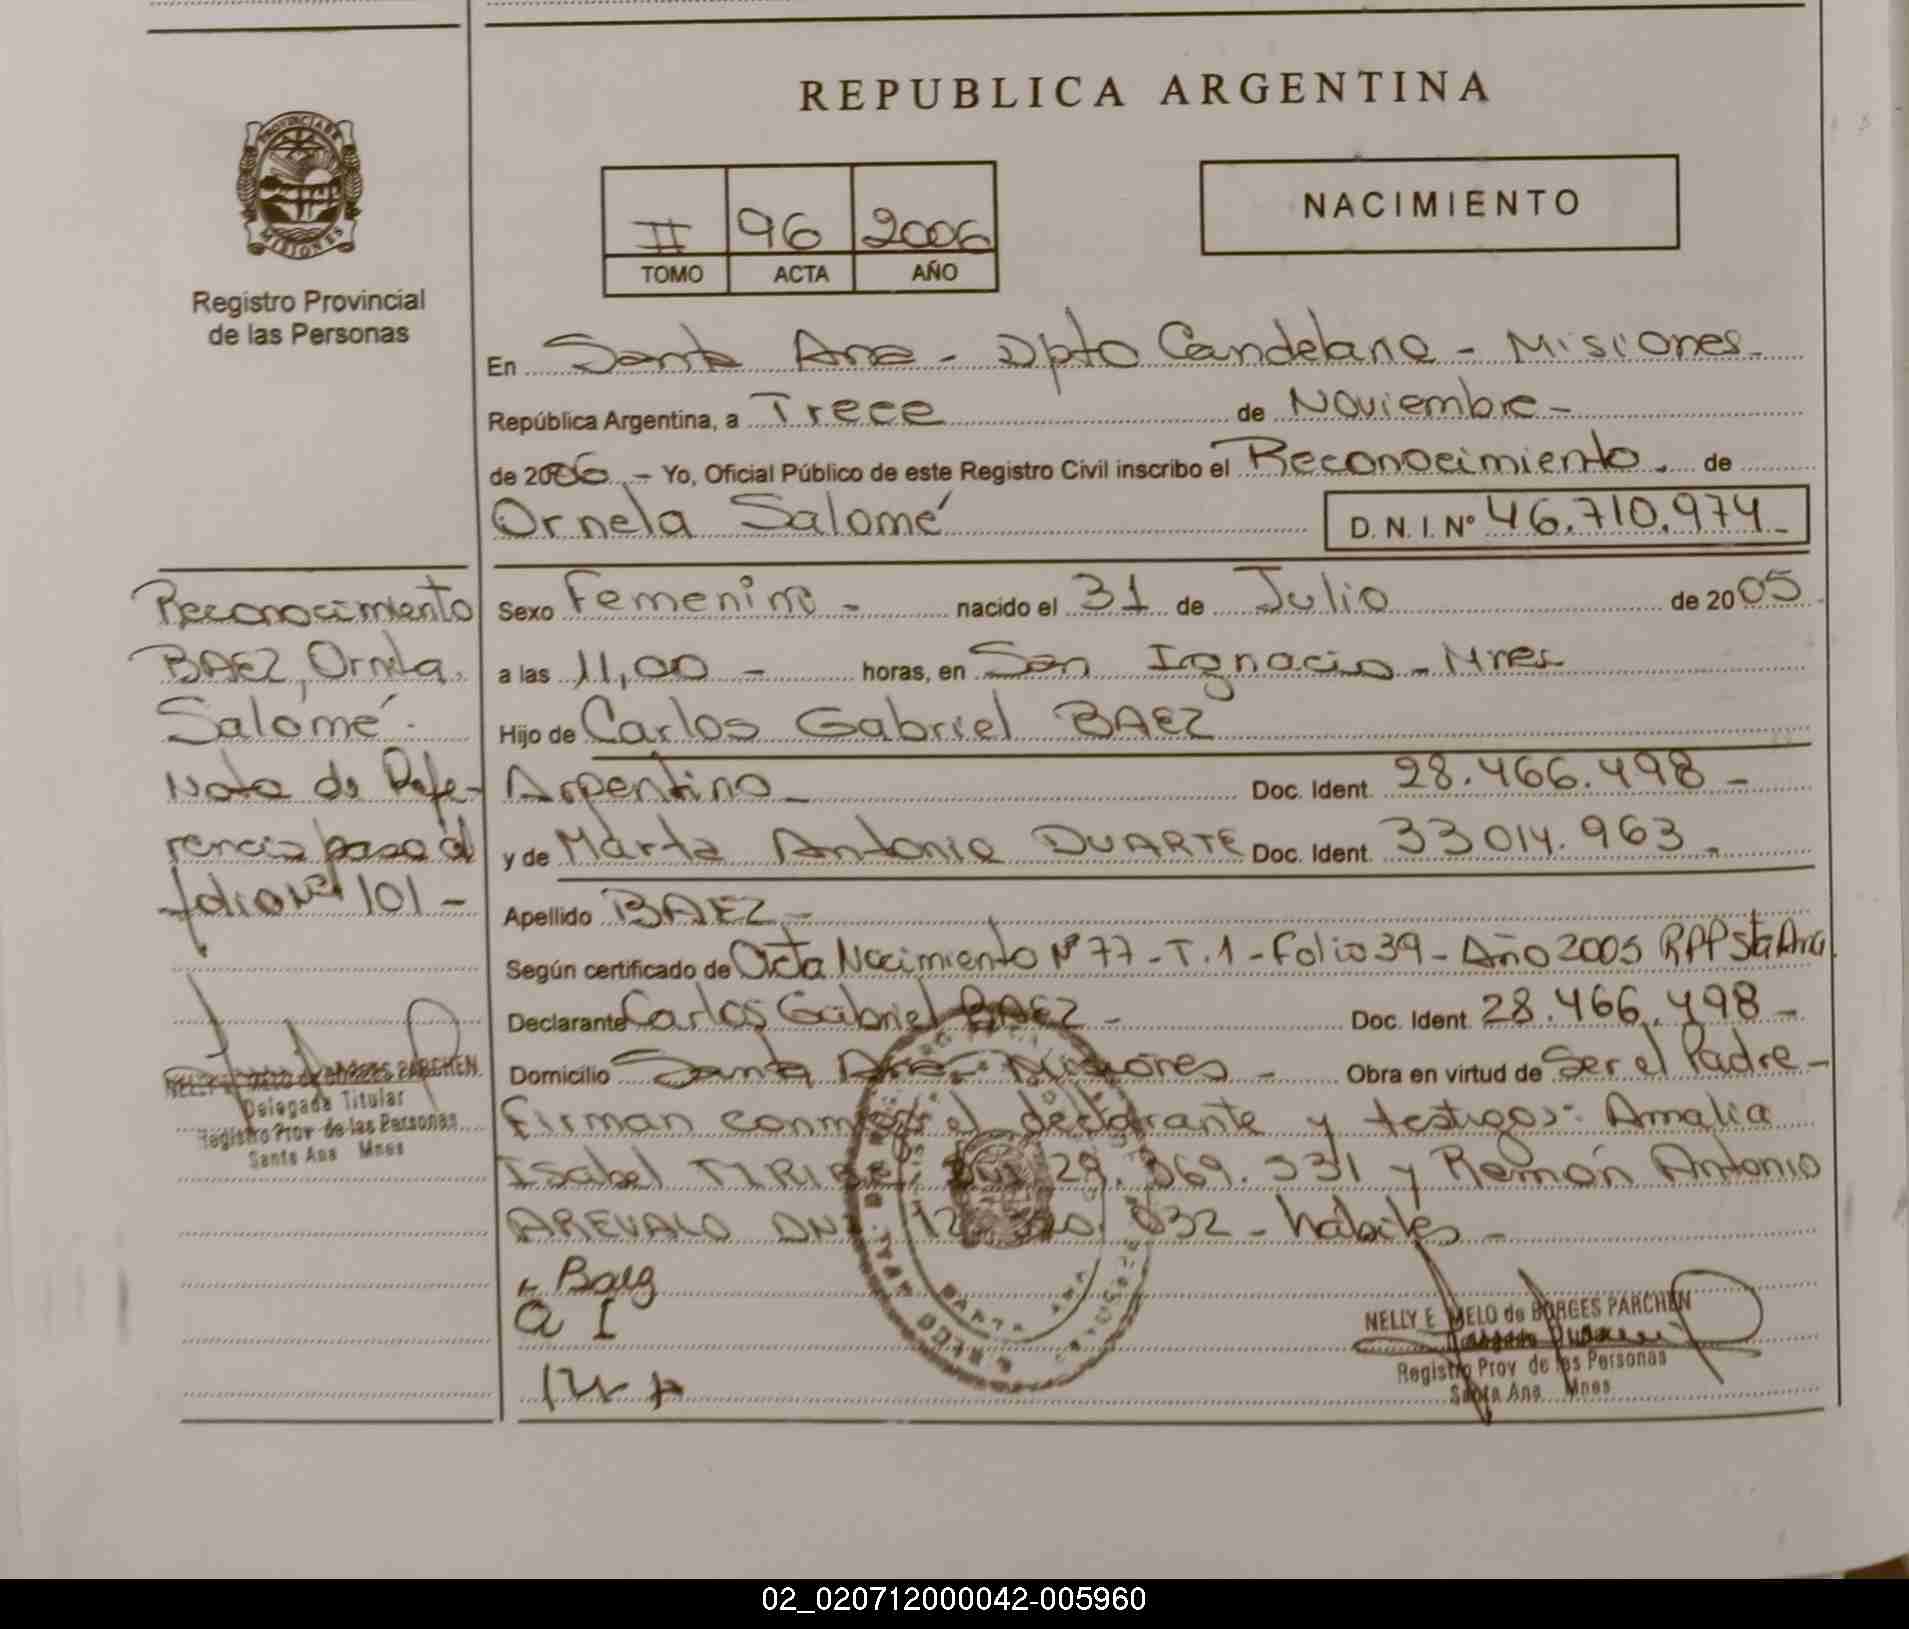 REPUBLICA ARGENTINA
PROVINCIA DE
MISIONES
Registro Provincial
de las Personas
II 96 2006
TOMO ACTA AÑO
NACIMIENTO
En Santa Ana - Dpto Candelaria - Misiones -
República Argentina, a Trece de Noviembre -
de 2006 - Yo, Oficial Público de este Registro Civil inscribo el Reconocimiento. de
Ornela Salomé D. N. I. Nº 46.710.974 -
Sexo Femenino - nacido el 31 de Julio de 2005
a las 11,00 - horas, en San Ignacio - Mnes
Hijo de Carlos Gabriel BAEZ
Argentino - Doc. Ident. 28.466.498 -
y de Marta Antonia DUARTE Doc. Ident. 33 014. 963 -
Apellido BAEZ -
Según certificado de Acta Nacimiento Nº 77 - T. 1 - Folio 39 - Año 2005 RPP Sta Ana
Declarante Carlos Gabriel BAEZ - Doc. Ident. 28.466.498 -
Domicilio Santa Ana - Misiones - Obra en virtud de Ser el Padre -
Firman conmigo el declarante y testigos: Amalia
Isabel 29. 369. 331 y Ramón Antonio
AREVALO DNI 12 032 - habiles -
Baez
a I
NELLY E MELO de BORGES PARCHEN
Registro Prov de las Personas
Santa Ana Mnes
SANTA ANA
Reconocimiento
BAEZ, Ornela
Salomé.
Nota de Refe-
rencia paso al
folio Nº 101 -
NELLY E MELO de BORGES PARCHEN
Delegada Titular
Registro Prov de las Personas
Santa Ana Mnes
02_020712000042-005960